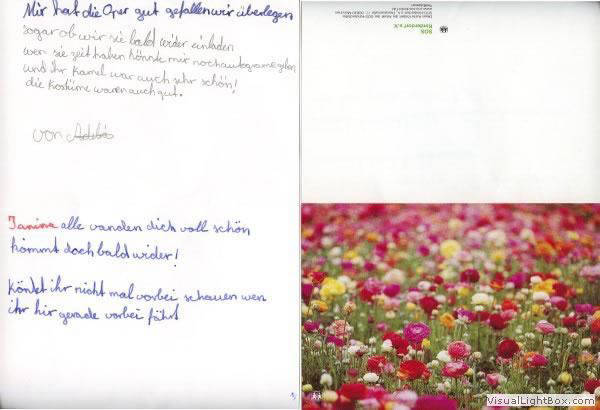 Mir hat die Oper gut gefallen wir überlegen
sogar ob wir sie bald wider einladen
wen sie zeit haben könnte mir noch autogramegeben
und ihr Kamel war auch sehr schön!
die Kostüme waren auch gut.
von
Janina alle vanden dich voll schön
kommt doch bald wider!
Köntet ihr nicht mal vorbei schauen wen
ihr hir gerade vorbei fährt
SOS
Kinderdorf e.V.
VisualLightBox.com